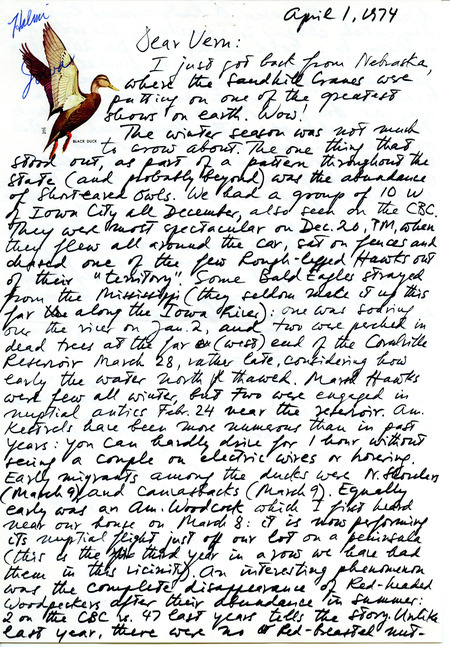 Helmi
April 1, 1974
Dear Vern:
I just got back from Nebraska,
where the Sandhill Cranes were
putting on one of the greatest
shows on earth. Wow!
BLACK DUCK
The winter season was not much
to crow about. The one thing that
stood out, as part of a pattern throughout the
state (and probably beyond) was the abundance
of Short-eared Owls. We had a group of 10 W
of Iowa City all December, also seen on the CBC.
They were most spectacular on Dec. 20, PM, when
they flew all around the car, sat on fences and
chased one of the few Rough-legged Hawks out
of their "territory". Some Bald Eagles strayed
from the Mississippi (they seldom make it up this
far along the Iowa River): one was soaring
over the river on Jan. 2, and two were perched in
dead trees at the far (west) end of the Coralville
Reservoir March 28, rather late, considering how
early the water north thawed. Marsh Hawks
were few all winter, but two were engaged in
nuptial antics Feb. 24 near the reservoir. Am.
Kestrels have been more numerous than in past
years: you can hardly drive for 1 hour without
seeing a couple on electric wires or hovering.
Early migrants among the ducks were N. Shovelers
(March 9) and Canvasbacks (March 9). Equally
early was an Am. Woodcock which I first heard
near our house on March 8: it is now performing
its nuptial flight just off our lot on a peninsula
(this is the third year in a row we have had
them in this vicinity). An interesting phenomenon
was the complete disappearance of Red-headed
Woodpeckers after their abundance in summer:
2 on the CBC vs. 47 last years tells the story. Unlike
last year, there were no Red-breasted nut-